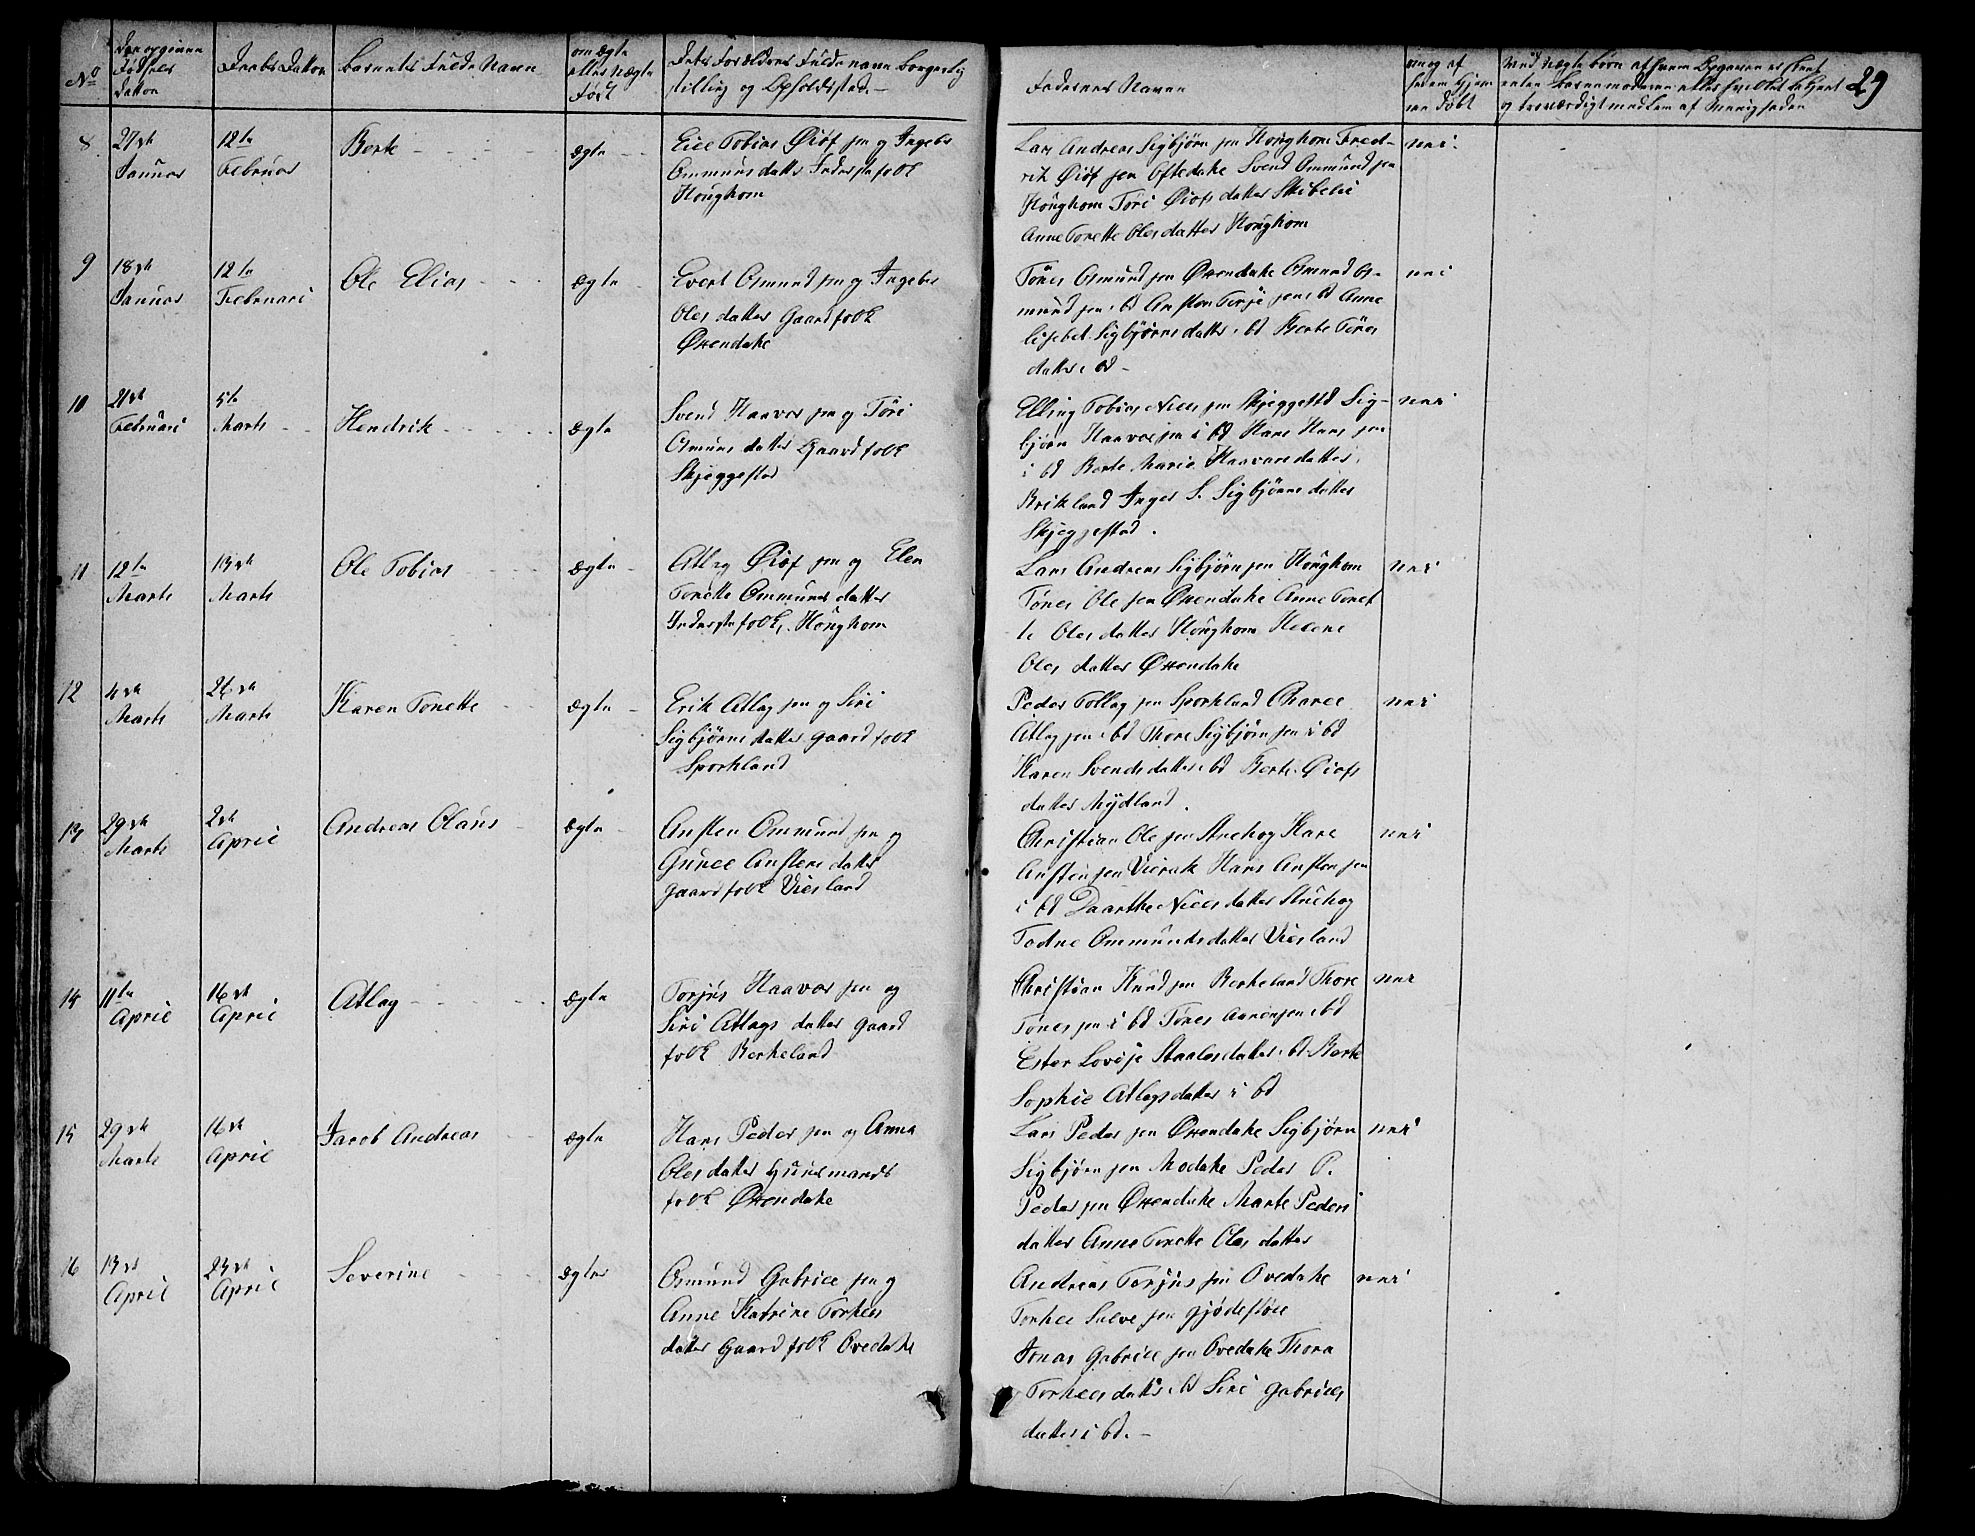 No
Den opgivne
Fødsels
datton
Daabs Datton
Barnets Fulde Navn
om Ægte
eller Uægte
Født
Dets Forældres Fulde navn Borgerlig
stilling og Opholdsted.-
Faderens Navne
om og af
hvem Hjem
me døbt
ved uægte børn af hvem Opgaven er skeet
enten Barnemoderen eller hvilket bekjent
og troværdigt medlem af Menigheden
29
8
27de
Januar
12te
Februar
Berte
ægte
Eili Tobias Øiöf sen og Ingebr
Ommunsdatter Inderstefolk
Hönghom
Lars Andreas Sigbjørn sen Hönghom Fred-
rik Øiöf sen Oftedahe Svend Ommund sen
Hönghom Töri Øiofs datter Skibeli
Anne Tonette Olesdatter Hönghom
nei
9
18de
Januar
12te
Februari
Ole Elias
ægte
Evert Osmund sen og Ingebr
Oles datter Gaardfolk
Øxendahe
Tönes Osmund sen Øxendahe Osmund Os-
mund sen i bd Ansten Terje sen i bd Anne
Lisebet Sigbjørnsdatter i bd Berte Tönes
datter i bd -
nei
10
21de
Februari
5te
Marts
Hendrik
ægte
Svend Haavor sen og Töri
Osmuns datter Gaardfolk
Skjeggestad
Elling Tobias Niels sen Skjeggestd Sig-
bjørn Haavor sen i bd Hans Hans sen
i bd Berte Marie Haavorsdatter
Birkland Inger S. Sigbjörnsdatter
Skjeggestad.
nei
11
12te
Marts
13de
Marts
Ole Tobias
ægte
Atlag Øiöf sen og Elen
Tonette Ommuns datter
Inderstefolk, Hönghom
Lars Andreas Sigbjørn sen Hönghom
Tönes Ole sen Øxendahe Anne Tonet
te Oles datter Hönghom Helene
Oles datter Øxendahe
nei
12
4de
Marts
26de
Marts
Karen Tonette
ægte
Erik Atlag sen og Siri
Sigbjørns datter gaardfolk
Sporkland
Peder Tollag sen Sporkland Charel
Atlag sen i bd Thore Sigbjørn sen i bd
Karen Svends datter i bd Berte Øiofs
datter Mydland.
nei
13
29de
Marts
2de
April
Andreas Olaus
ægte
Ansten Ommund sen og
Gunel Anstens datter
gaardfolk Viesland
Christian Ole sen Strehog Kare
Ansten sen Vierak Hans Ansten sen
i bd Daarthe Niels datter Strehog
Todne Ommundsdatter Viesland
nei
14
11te
April
16de
April
Atlag
ægte
Torjus Haavor sen og
Siri Atlags datter gaard
folk Berkeland
Christian Knud sen Berkeland Thore
Tönes sen i bd Tönes Aanen sen i bd
Ester Lovise Staalesdatter i bd Berte
Sophie Atlagsdatter i bd
nei
15
29de
Marts
16de
April
Jacob Andreas
ægte
Hans Peder sen og Anna
Oles datter Huusmands
folk Øxendahe
Lars Peder sen Øxendahe Sigbjørn
Sigbjørn sen Modahe Peder P.
Peder sen Øxendahe Marte Peders
datter Anne Tonette Oles datter
nei
16
13de
April
23de
April
Severine
ægtes
Osmund Gabriel sen og
Anne Katrine Torkels
datter Gaardfolk Ovedahe
Andreas Torjus sen Ovedahe
Torkel Salve sen Gjødestöl
Jonas Gabriel sen Ovedahe Thora
Torkels datter i bd Siri Gabriels
datter i bd. -
nei